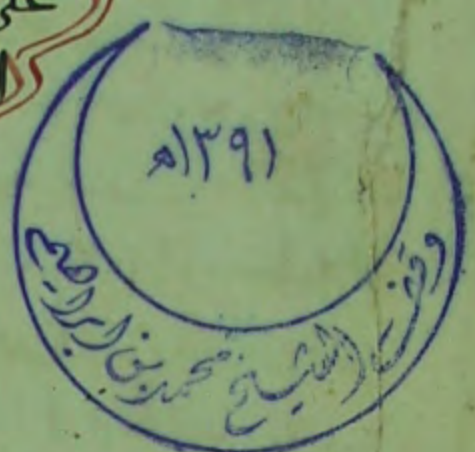 على
١٣٩١ھ
وقف الشيخ محمد بن ابراهيم